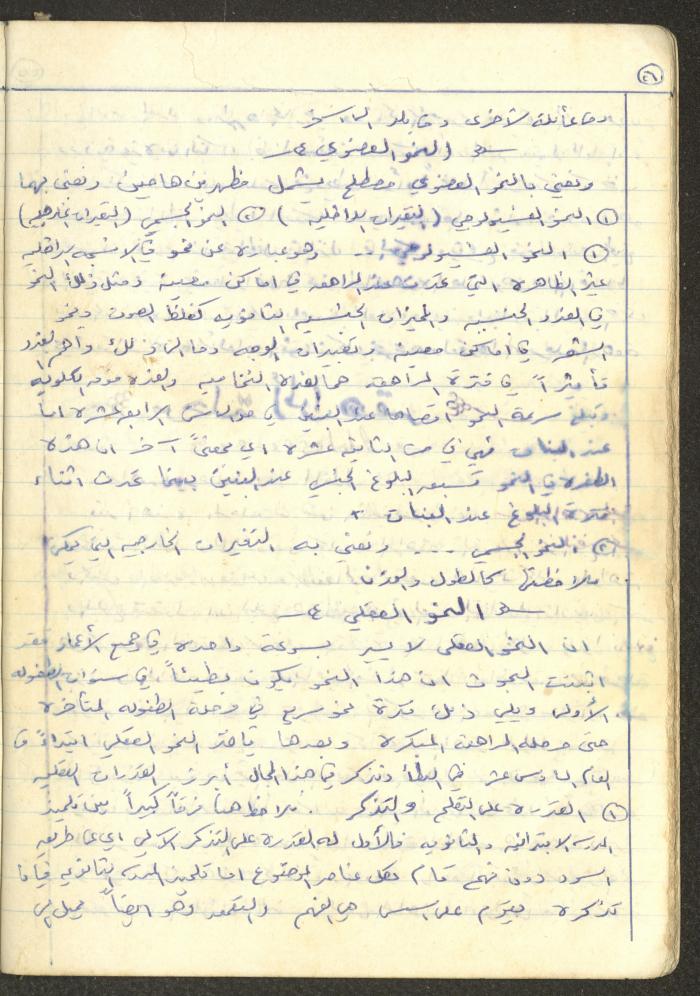 ٢٦
النمو العضوي
ونعني بالنمو العضوي مصطلح يشمل مظهرين هامين ونعني بهما
① النمو الفسيولوجي (التغيرات الداخلية) ② النمو الجسمي (التغيرات الخارجية)
① النمو الفسيولوجي :.. وهو عبارة عن نمو في الأنسجة الداخلية
الظاهرة التي تحدث عند المراهق في اماكن معينة ومثل ذلك النمو
في الغدد الجنسية والمميزات الجنسية الثانوية كغلظ الصوت ونمو
الشعر في اماكن معينة وتغيرات الوجه وما الى ذلك واهم الغدد
تأثيراً في فترة المراهقة هما الغدة النخامية والغدة فوق الكلوية
وتبلغ سرعة النمو اقصاها عند البنين في حوالي الرابعة عشرة اما
عند البنات فهي في سن الثانية عشرة اي بمعنى آخر ان هذه
الطفرة في النمو تسبق البلوغ الجنسي عند البنين بينما تحدث اثناء
فترة البلوغ عند البنات .
② النمو الجسمي .... ونعني به التغيرات الخارجية التي يمكن
ملاحظتها كالطول والوزن .
النمو العقلي
ان النمو العقلي لا يسير بسرعة واحدة في جميع الأعمار فقد
اثبتت البحوث ان هذا النمو يكون بطيئاً في سنوات الطفولة
الأولى ويلي ذلك فترة نمو سريع في مرحلة الطفولة المتأخرة
حتى مرحلة المراهقة المبكرة وبعدها يأخذ النمو العقلي ابتداءً من
العام السادس عشر في البطأ ونذكر في هذا المجال أبرز القدرات العقلية
① القدرة على التعلم والتذكر فلاحظ هنا فرقاً كبيراً بين تلميذ
المدرسة الابتدائية والثانوية فالأول له القدرة على التذكر الآلي اي على طريقة
السرد دون فهم تام لكل عناصر الموضوع اما تلميذ المدرسة الثانوية فان
تذكره يقوم على اسس هي الفهم والتعمق وهو ايضاً يميل الى